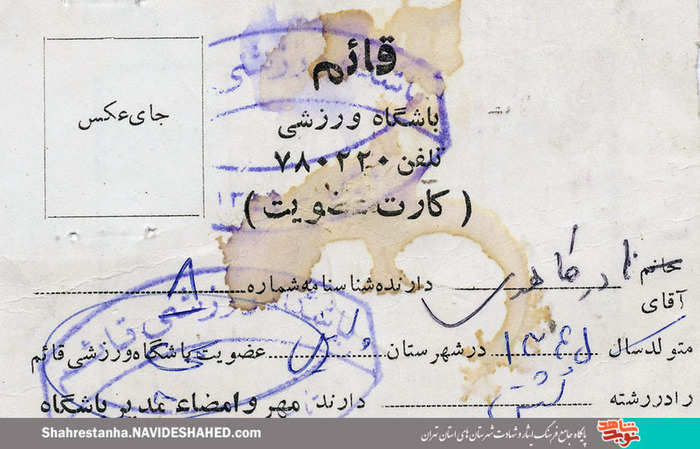 قائم
باشگاه ورزشی
جای عکس
تلفن ۷۸۰۲۲۰
( کارت عضویت )
خانم
آقای
دارنده شناسنامه شماره ۸
متولد سال در شهرستان عضویت باشگاه ورزشی قائم
را در رشته کشتی دارند مهر و امضاء مدیر باشگاه
باشگاه ورزشی قائم
Shahrestanha.NAVIDESHAHED.com
پایگاه جامع فرهنگ ایثار و شهادت شهرستان های استان تهران
نوید شاهد